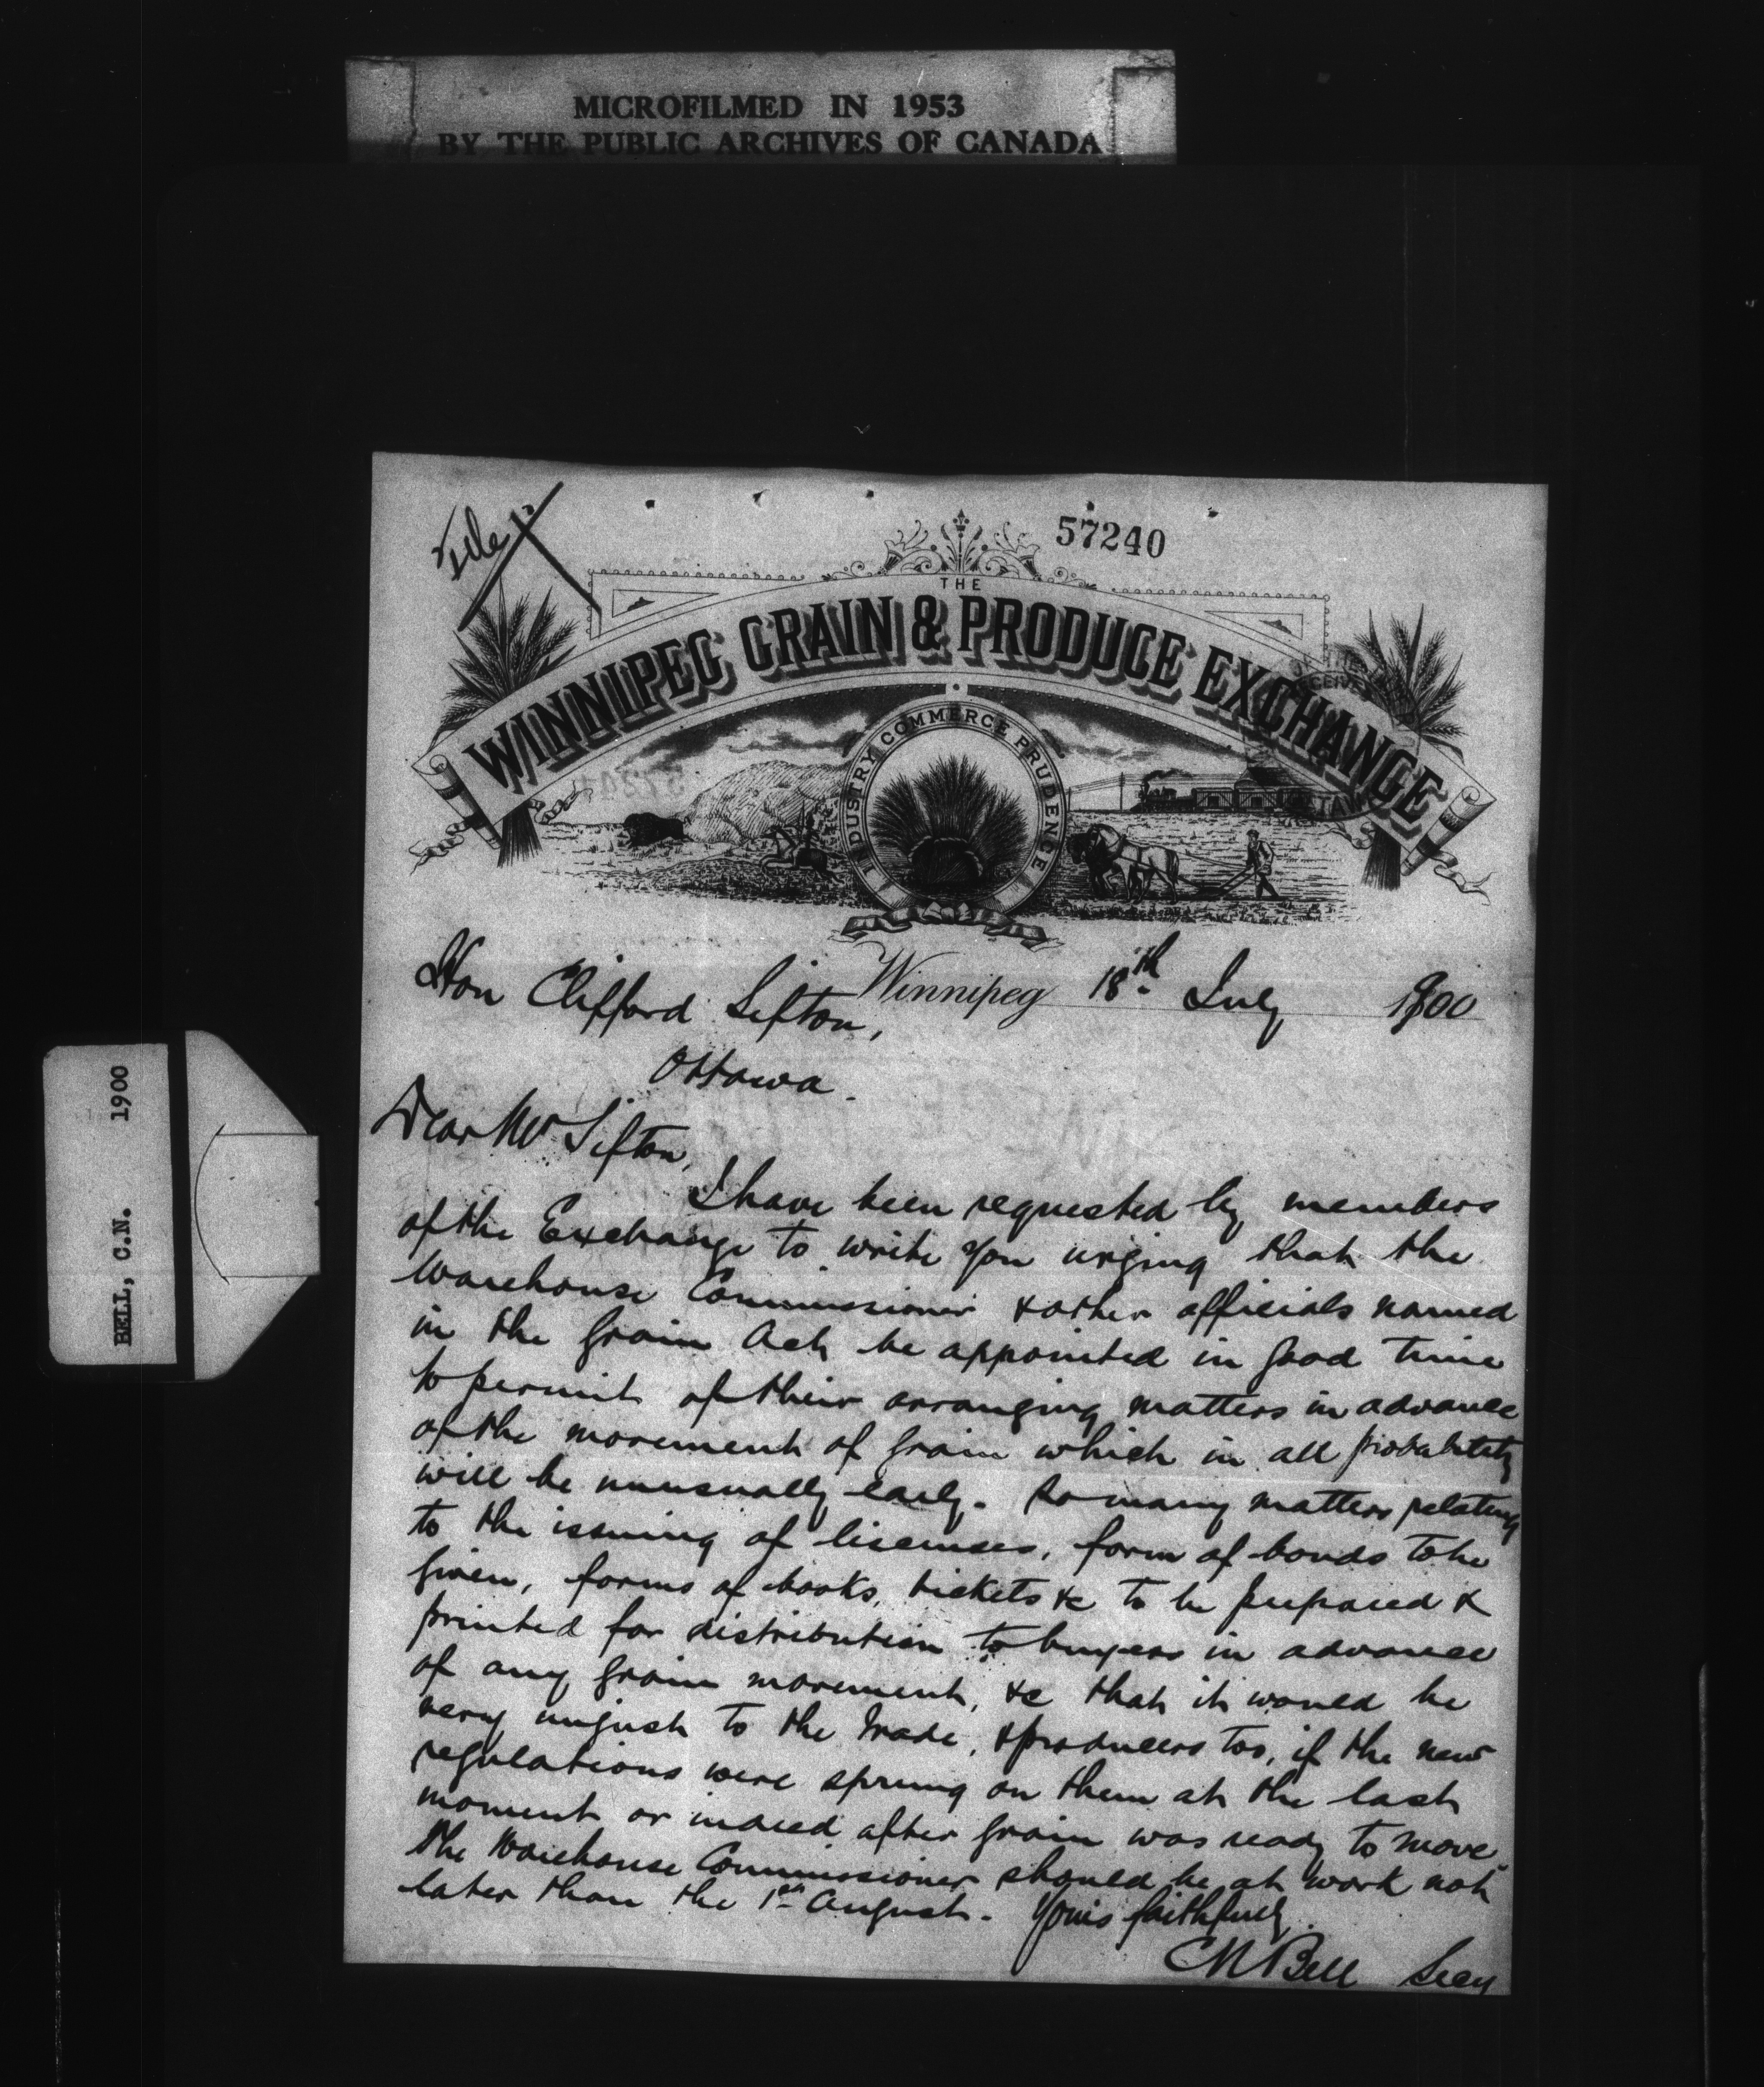 MICROFILMED IN 1953
BY THE PUBLIC ARCHIVES OF CANADA
File
57240
THE
WINNIPEG GRAIN & PRODUCE EXCHANGE
INDUSTRY COMMERCE PRUDENCE
Winnipeg 18th July 1900
Hon Clifford Sifton,
Ottawa.
Dear Mr Sifton,
I have been requested by members
of the Exchange to write you urging that the
Warehouse Commissioner & other officials named
in the Grain Act be appointed in good time
to permit of their arranging matters in advance
of the movement of grain which in all probability
will be unusually early. So many matters relating
to the issuing of licenses, form of bonds to be
given, forms of books, tickets &c to be prepared &
printed for distribution to buyers in advance
of any grain movement, &c that it would be
very unjust to the trade, & producers too, if the new
regulations were sprung on them at the last
moment or indeed after grain was ready to move.
The Warehouse Commissioner should be at work not
later than the 1st August. Yours faithfully.
C N Bell Secy
BELL, C.N. 1900